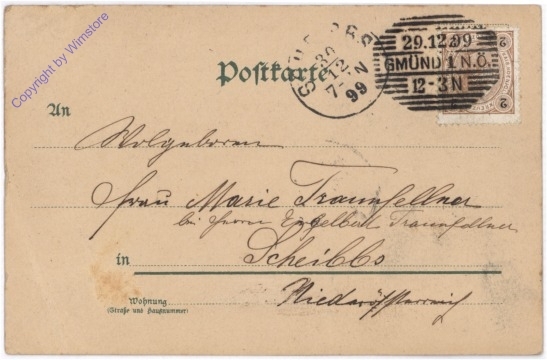 Copyright by Wimstore
Postkarte
29.12.99
GMÜND I. N.Ö.
12-3N
30
12
7-N
99
2
2
An
Wolgeboren
Frau Marie Traunfellner
bei Herrn Engelbert Traunfellner
in Scheibbs
Niederösterreich
Wohnung
(Straße und Hausnummer)